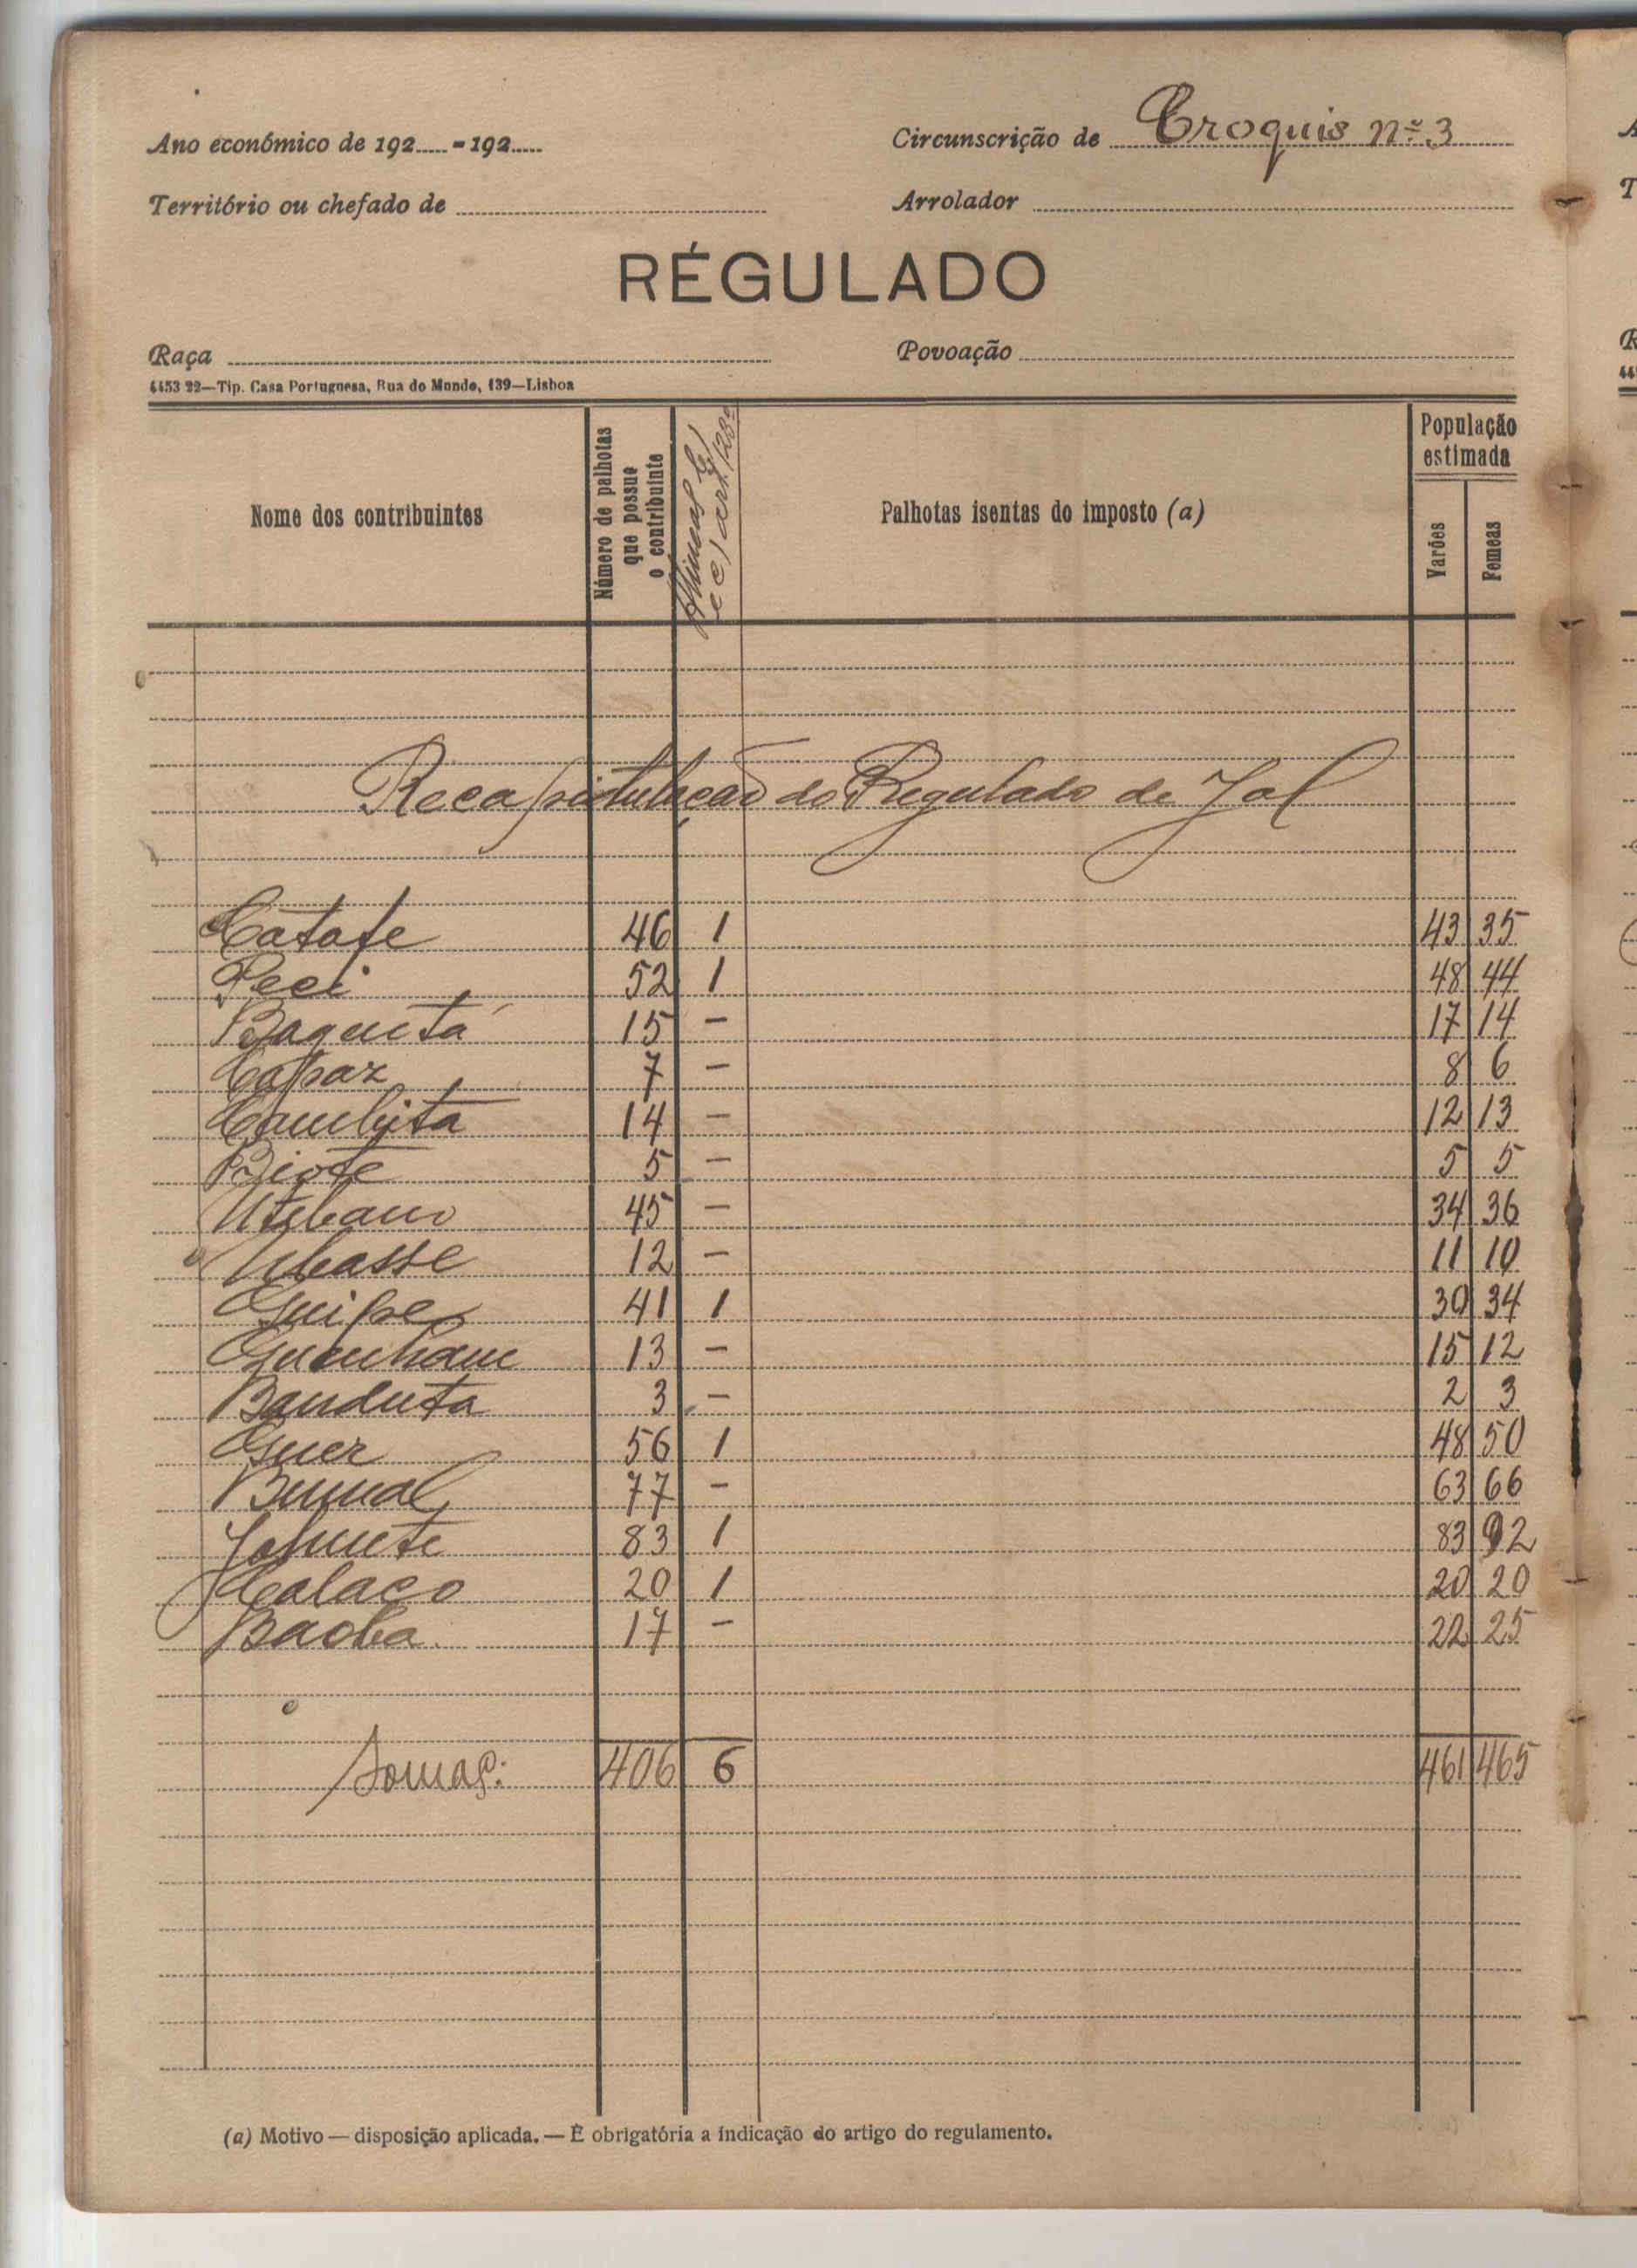 Ano económico de 192..... - 192..... Circunscrição de Croquis nº 3
Território ou chefado de Arrolador
RÉGULADO
Raça Povoação
4453 22—Tip. Casa Portuguesa, Rua do Mundo, 139—Lisboa
Nome dos contribuintes
Número de palhotas que possue o contribuinte
e c) art. 23º
Palhotas isentas do imposto (a)
População estimada
Varões
Femeas
Recapitulação do Regulado de Jol
Catafe 46 1 43 35
Peci 52 1 48 44
Baquetá 15 – 17 14
Capaz 7 – 8 6
14 – 12 13
Biote 5 – 5 5
45 – 34 36
Ubasse 12 – 11 10
Quipe 41 1 30 34
13 – 15 12
Banduta 3 – 2 3
Quer 56 1 48 50
77 – 63 66
83 1 83 92
Calaco 20 1 20 20
Baoba 17 – 22 25
406 6 461 465
(a) Motivo — disposição aplicada. — É obrigatória a indicação do artigo do regulamento.